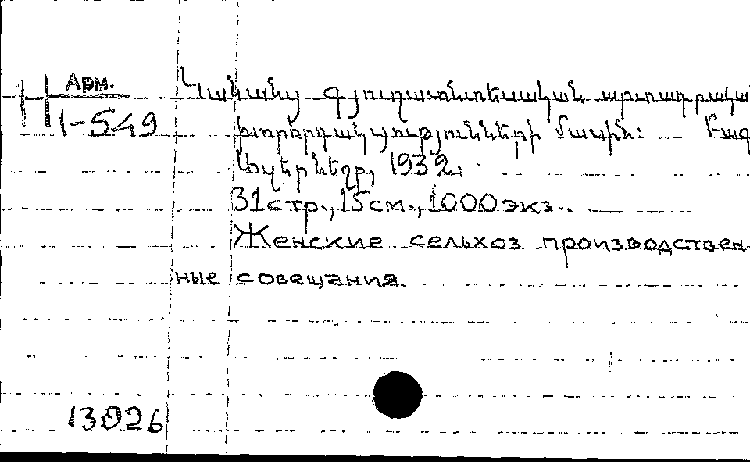 Арм.
II
1-549
Կանանց գյուղատնտեսական արտադրակա
խորհրդակցությունների մասին: Բագ
Ազերնեշր, 1932.
31 стр., 15 см., 1000 экз.
Женские сельхоз производствен-
ные совещания.
13026